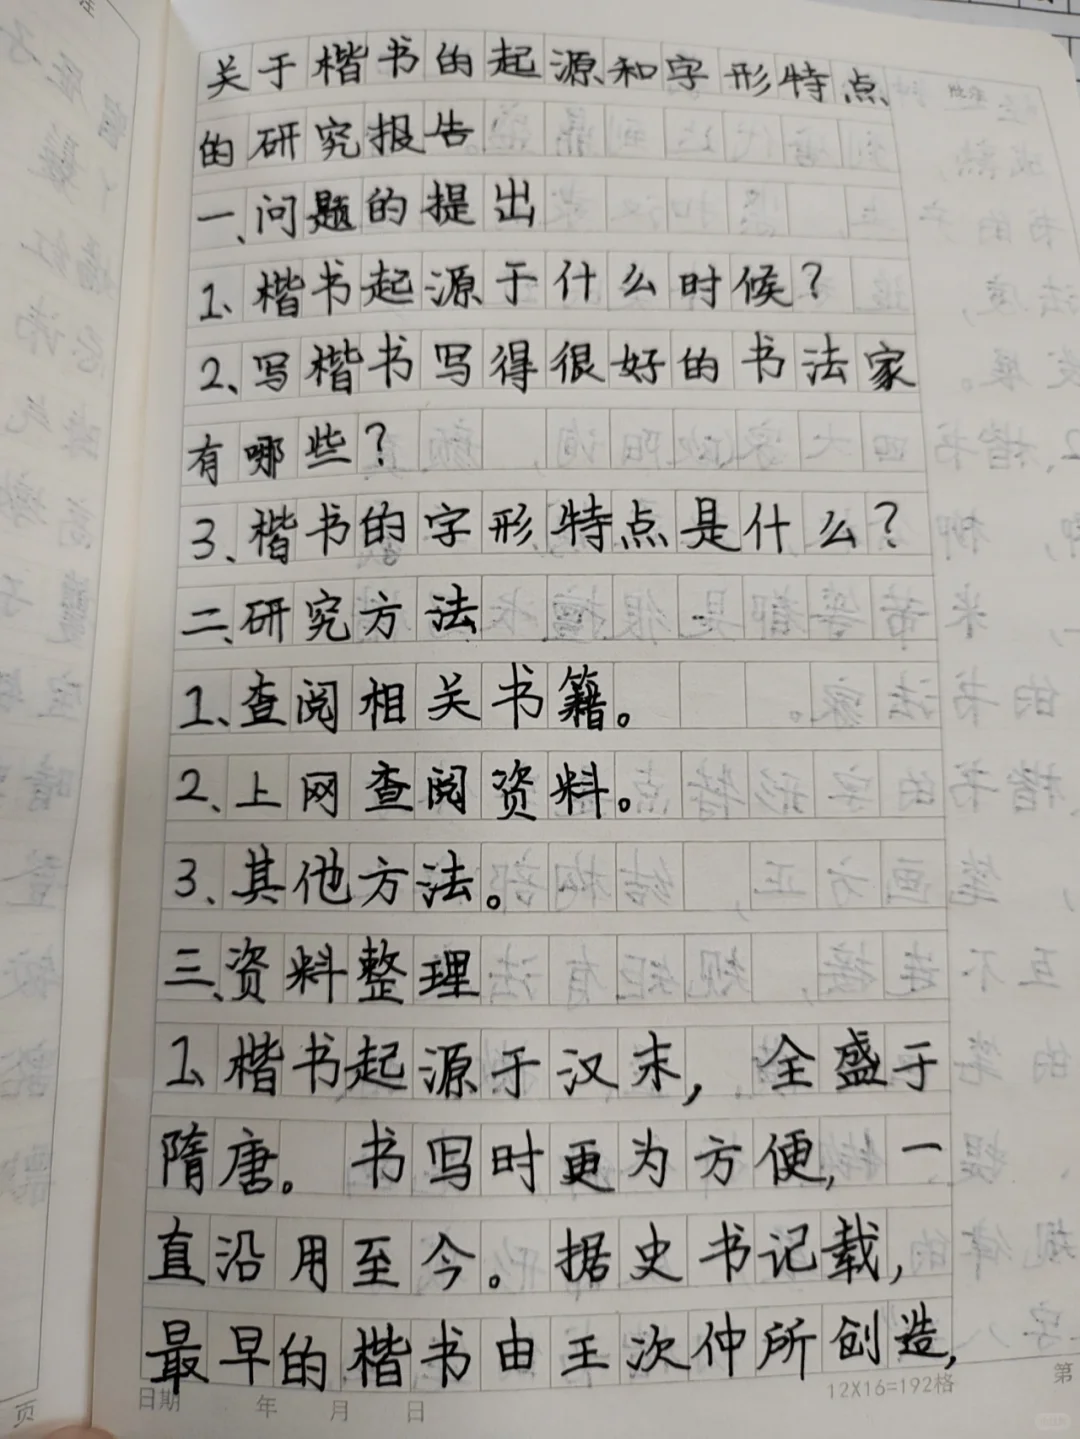 关于楷书的起源和字形特点
的研究报告
一、问题的提出
1、楷书起源于什么时候？
2、写楷书写得很好的书法家
有哪些？
3、楷书的字形特点是什么？
二、研究方法
1、查阅相关书籍。
2、上网查阅资料。
3、其他方法。
三、资料整理
1、楷书起源于汉末，全盛于
隋唐。书写时更为方便，一
直沿用至今。据史书记载，
最早的楷书由王次仲所创造，
日期 年 月 日
12X16=192格
第
页